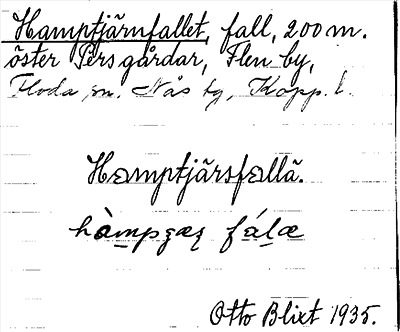 Hamptjärnfallet, fall, 200 m.
öster Pers gårdar, Flen by,
Floda sn. Nås tg, Kopp. l.
Hamptjärsfallä.
hàmpʒæʒ fálæ
Otto Blixt 1935.